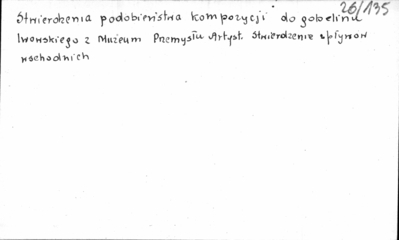 26/135
Stwierdzenia podobieństwa kompozycji do gobelinu
lwowskiego z Muzeum Przemysłu Artyst. Stwierdzenie wpływów
wschodnich